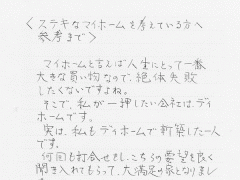 ＜ステキなマイホームを考えている方へ
参考まで＞
マイホームと言えば人生にとって一番
大きな買い物なので、絶体失敗
したくないですよね。
そこで、私が一押したい会社は、ディ
ホームです。
実は、私もディホームで新築した一人
です。
何回も打合せをし、こちらの要望を良く
聞き入れてもらって、大満足の家となりまし